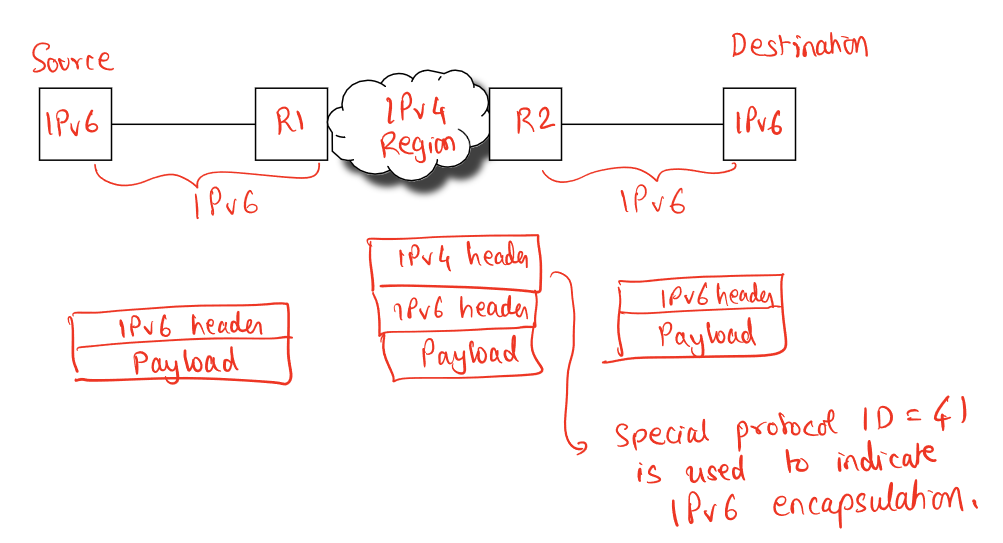 Source
Destination
IPv6
R1
IPv4
Region
R2
IPv6
IPv6
IPv6
IPv4 header
IPv6 header
Payload
IPv6 header
Payload
IPv6 header
Payload
Special protocol ID = 41
is used to indicate
IPv6 encapsulation.